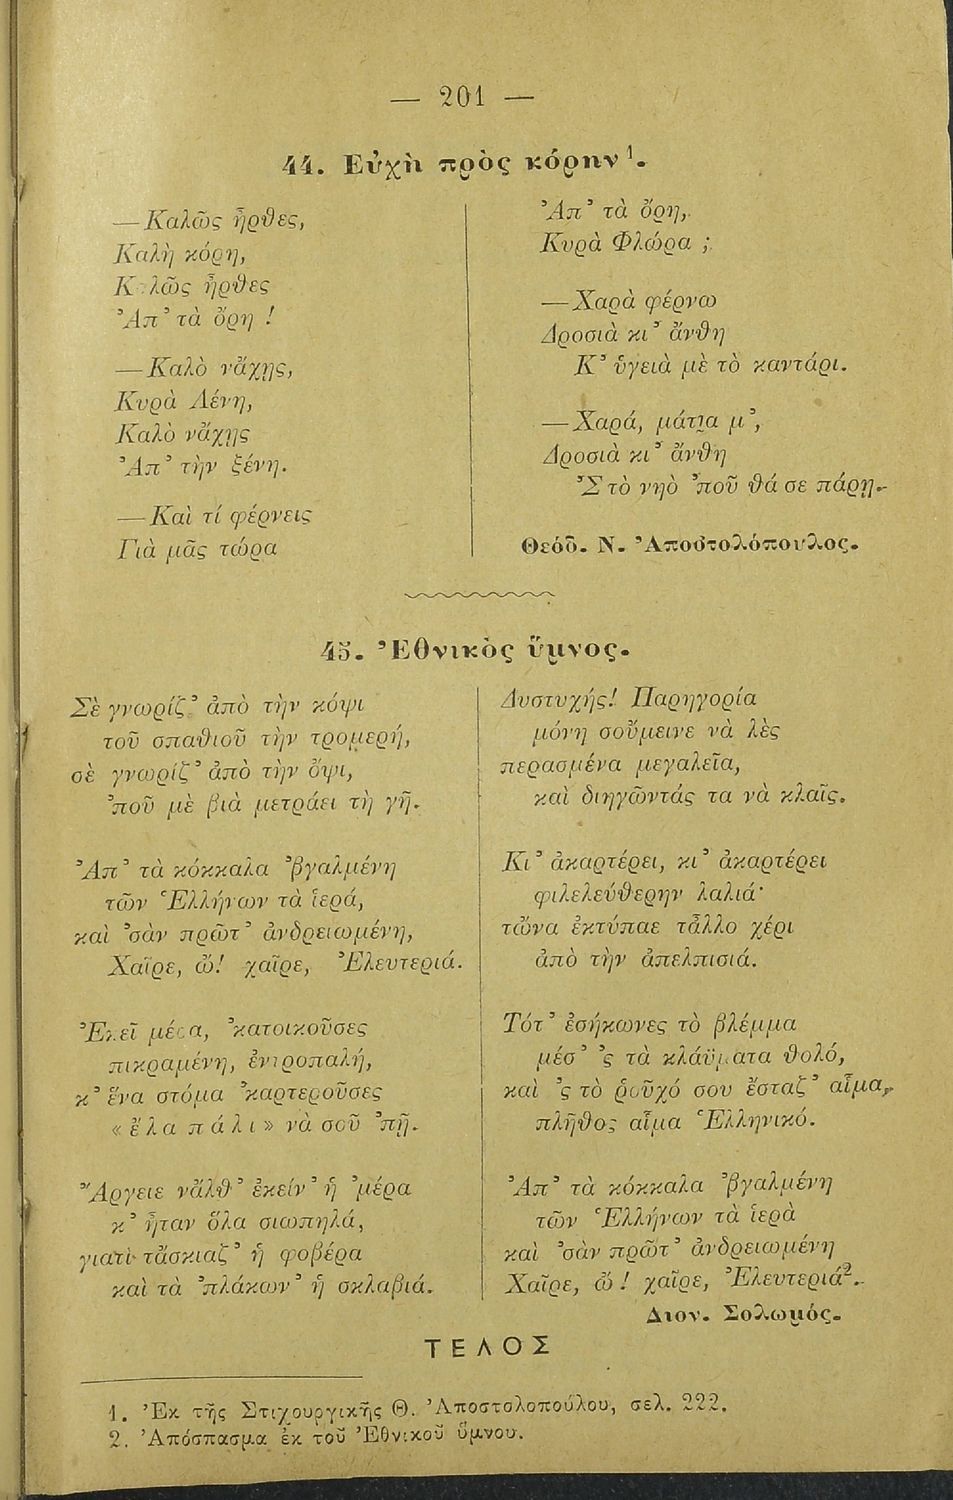 — 201 —
44. Εὐχὴ πρὸς κόρην ¹.
—Καλῶς ἦρθες,
Καλὴ κόρη,
Κ λῶς ἦρθες
Ἀπ᾽ τὰ ὄρη !
—Καλὸ νἄχῃς,
Κυρὰ Λένη,
Καλὸ νἄχῃς
Ἀπ᾽ τὴν ξένη.
—Καὶ τί φέρνεις
Γιὰ μᾶς τώρα
Ἀπ᾽ τὰ ὄρη,
Κυρὰ Φλώρα ;
—Χαρὰ φέρνω
Δροσιὰ κι᾽ ἄνθη
Κ᾽ ὑγειὰ μὲ τὸ καντάρι.
—Χαρά, μάτια μ᾽,
Δροσιὰ κι᾽ ἄνθη
Ἐ τὸ νηὸ ᾽ποῦ θά σε πάρῃ.
Θεόδ. Ν. Ἀποστολόπουλος.
45. Ἐθνικὸς ὕμνος.
Σὲ γνωρίζ᾽ ἀπὸ τὴν κόψι
τοῦ σπαθιοῦ τὴν τρομερή,
σὲ γνωρίζ᾽ ἀπὸ τὴν ὄψι,
᾽ποῦ μὲ βιὰ μετράει τὴ γῆ.
Ἀπ᾽ τὰ κόκκαλα ᾽βγαλμένη
τῶν Ἑλλήνων τὰ ἱερά,
καὶ ᾽σὰν πρῶτ᾽ ἀνδρειωμένη,
Χαῖρε, ὤ! χαῖρε, Ἐλευτεριά.
Ἐκεῖ μέσα, ᾽κατοικοῦσες
πικραμένη, ἐντροπαλή,
κ᾽ ἕνα στόμα ᾽καρτεροῦσες
«ἔλα πάλι» νὰ σοῦ ᾽πῇ.
Ἄργειε νἄλθ᾽ ἐκείν᾽ ἡ ᾽μέρα
κ᾽ ἦταν ὅλα σιωπηλά,
γιατὶ τἄσκιαζ᾽ ἡ φοβέρα
καὶ τὰ ᾽πλάκων᾽ ἡ σκλαβιά.
Δυστυχής! Παρηγορία
μόνη σοὔμεινε νὰ λὲς
περασμένα μεγαλεῖα,
καὶ διηγῶντάς τα νὰ κλαῖς.
Κι᾽ ἀκαρτέρει, κι᾽ ἀκαρτέρει
φιλελεύθερην λαλιά·
τὤνα ἐκτύπαε τἄλλο χέρι
ἀπὸ τὴν ἀπελπισιά.
Τότ᾽ ἐσήκωνες τὸ βλέμμα
μέσ᾽ ᾽ς τὰ κλάϋματα θολό,
καὶ ᾽ς τὸ ῥοῦχό σου ἔσταζ᾽ αἷμα,
πλῆθος αἷμα Ἑλληνικό.
Ἀπ᾽ τὰ κόκκαλα ᾽βγαλμένη
τῶν Ἑλλήνων τὰ ἱερὰ
καὶ ᾽σὰν πρῶτ᾽ ἀνδρειωμένη
Χαῖρε, ὤ ! χαῖρε, Ἐλευτεριά².
Διον. Σολωμός.
ΤΕΛΟΣ
1. Ἐκ τῆς Στιχουργικῆς Θ. Ἀποστολοπούλου, σελ. 222.
2. Ἀπόσπασμα ἐκ τοῦ Ἐθνικοῦ ὕμνου.